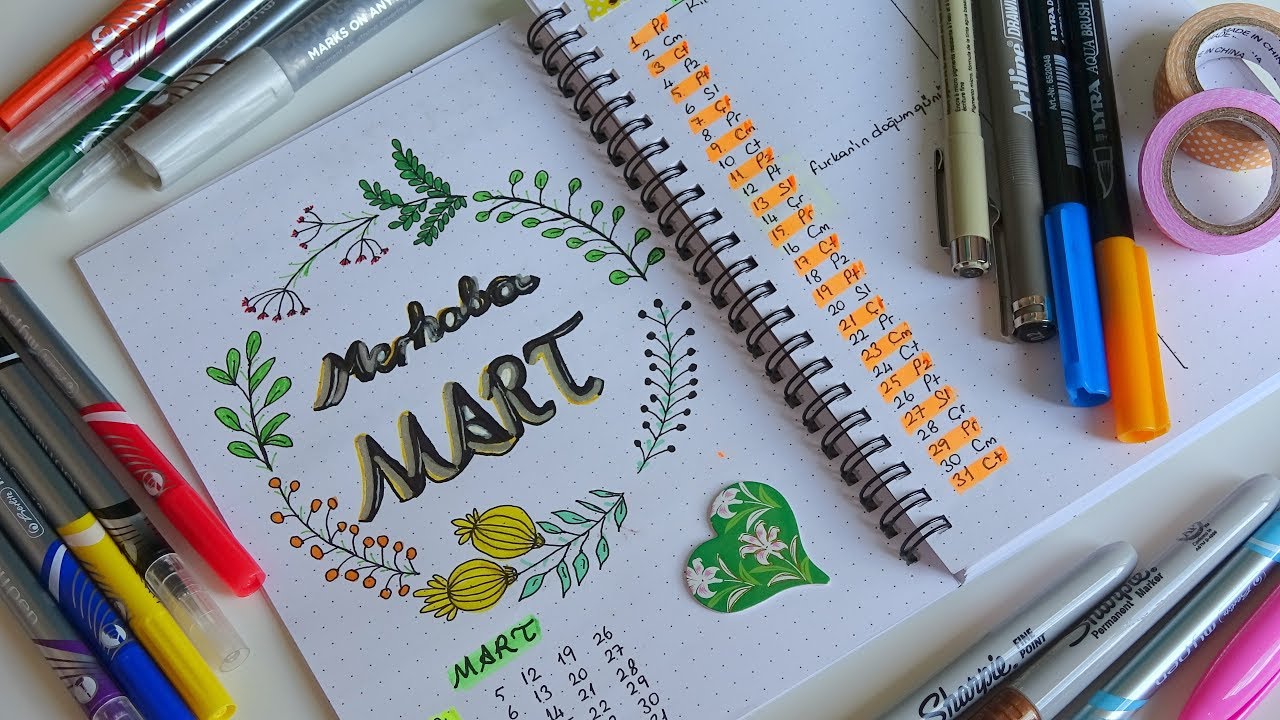 Merhaba
MART
MART
5 12 19 26
6 13 20 27
14 21 28
22 29
30
31
1 Pr
2 Cm
3 Ct
4 Pz
5 Pt
6 Sl
7 Çr
8 Pr
9 Cm
10 Ct
11 Pz
12 Pt
13 Sl
14 Çr
15 Pr
16 Cm
17 Ct
18 Pz
19 Pt
20 Sl
21 Çr
22 Pr
23 Cm
24 Ct
25 Pz
26 Pt
27 Sl
28 Çr
29 Pr
30 Cm
31 Ct
Furkan'ın doğum günü
MARKS ON
Artline
LYRA AQUA BRUSH
Art.-Nr. 6520048
MADE IN CHINA
Sharpie
FINE POINT
Sharpie
Permanent Marker